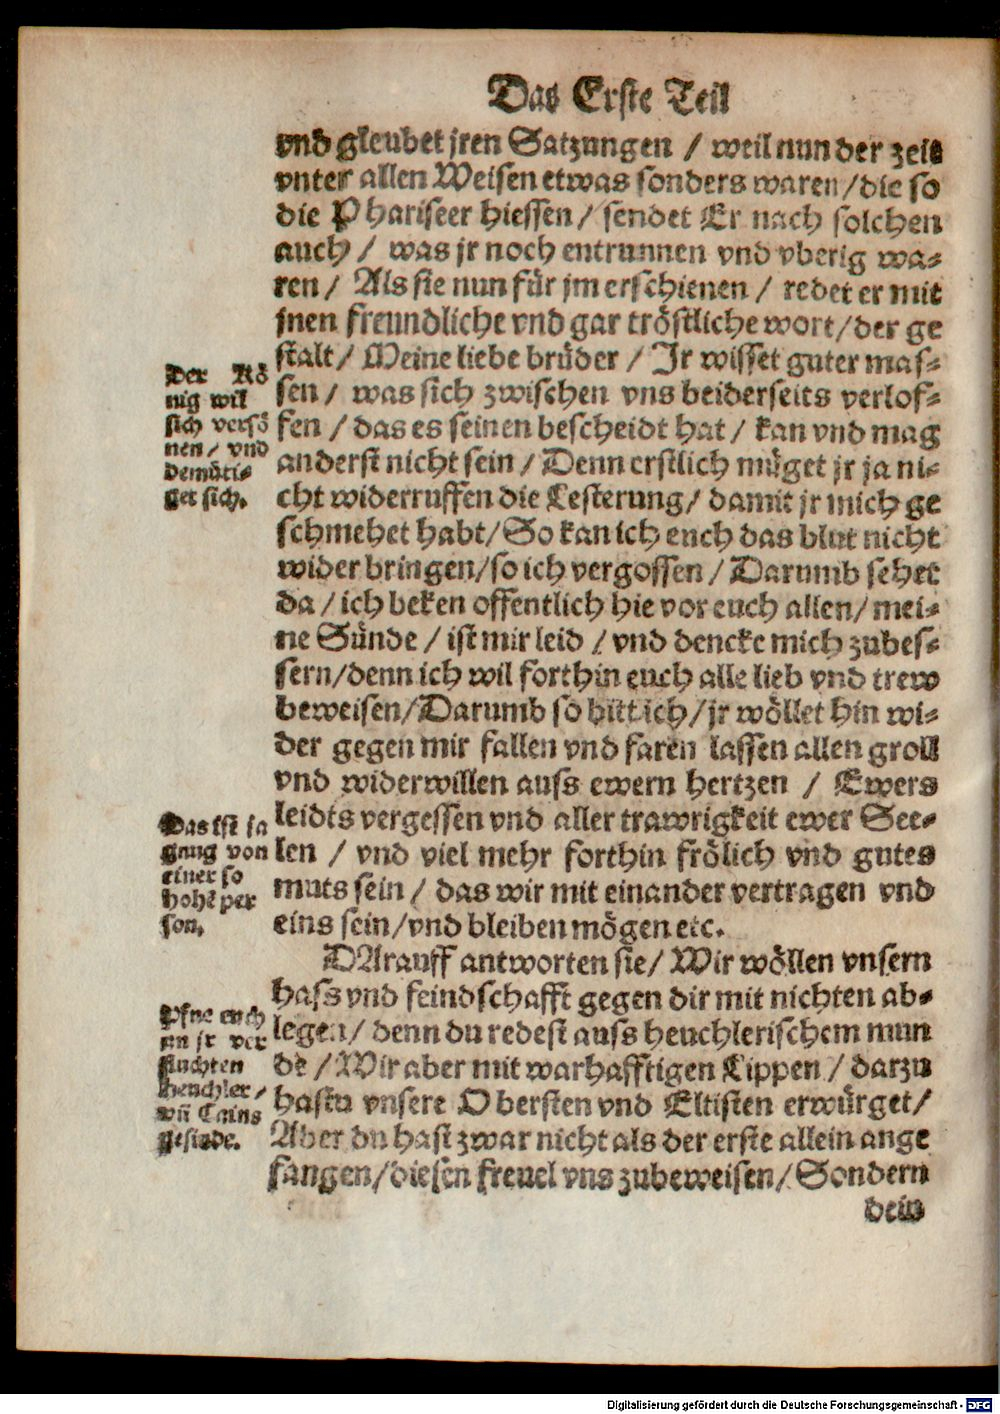 Das Erste Teil
vnd gleubet jren Satzungen / weil nun der zeit
vnter allen Weisen etwas sonders waren / die so
die Phariseer hiessen / sendet Er nach solchen
auch / was jr noch entrunnen vnd vberig wa-
ren / Als sie nun für jm erschienen / redet er mit
jnen freundliche vnd gar tröstliche wort / der ge
stalt / Meine liebe brüder / Jr wisset guter mas-
sen / was sich zwischen vns beiderseits verlof-
fen / das es seinen bescheidt hat / kan vnd mag
anderst nicht sein / Denn erstlich müget jr ja ni-
cht widerruffen die Lesterung / damit jr mich ge
schmehet habt / So kan ich euch das blut nicht
wider bringen / so ich vergossen / Darumb sehet
da / ich beken offentlich hie vor euch allen / mei-
ne Sünde / ist mir leid / vnd dencke mich zubes-
sern / denn ich wil forthin euch alle lieb vnd trew
beweisen / Darumb so bitt ich / jr wöllet hin wi-
der gegen mir fallen vnd faren lassen allen groll
vnd widerwillen auss ewern hertzen / Ewers
leidts vergessen vnd aller trawrigkeit ewer See-
len / vnd viel mehr forthin frölich vnd gutes
muts sein / das wir mit einander vertragen vnd
eins sein / vnd bleiben mögen etc.
DArauff antworten sie / Wir wöllen vnsern
hass vnd feindschafft gegen dir mit nichten ab-
legen / denn du redest auss heuchlerischem mun
de / Wir aber mit warhafftigen Lippen / darzu
hastu vnsere Obersten vnd Eltisten erwürget /
Aber du hast zwar nicht als der erste allein ange
fangen / diesen freuel vns zubeweisen / Sondern
dein
Der Kö
nig wil
sich versö
nen / vnd
demüti-
get sich.
Das ist ja
gnug von
einer so
hohē per
son.
Pfue euch
an jr ver
fluchten
Heuchler /
vñ Cains
gesinde.
Digitalisierung gefördert durch die Deutsche Forschungsgemeinschaft - DFG